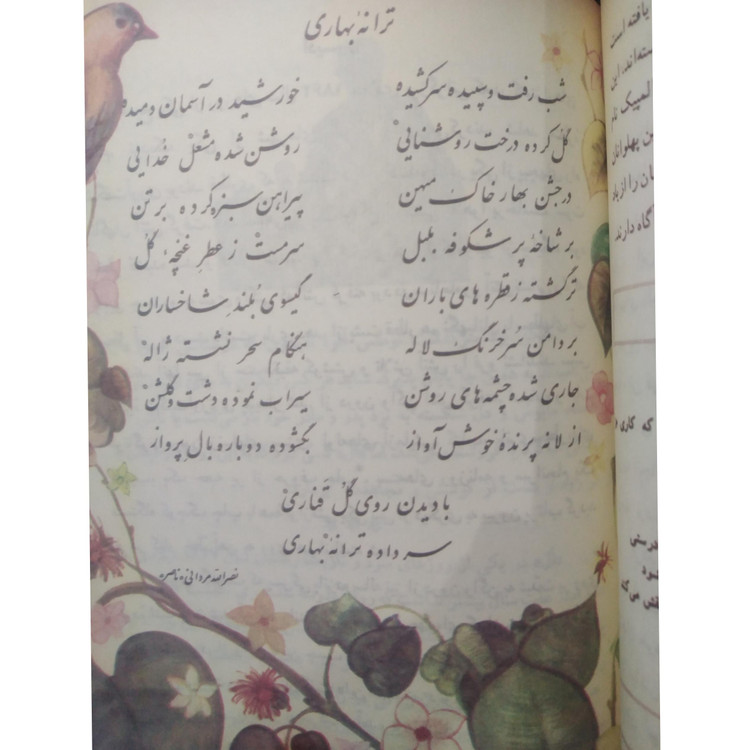 ترانهٔ بهاری
شب رفت و سپیده سر کشیده خورشید در آسمان دمیده
گل کرده درخت روشنایی روشن شده مشعل خدایی
در جشن بهار خاک میهن پیراهن سبزه کرده بر تن
بر شاخهٔ پر شکوفه بلبل سرمست ز عطر غنچهٔ گل
تر گشته ز قطره های باران گیسوی بلند شاخساران
بر دامن سرخرنگ لاله هنگام سحر نشسته ژاله
جاری شده چشمه های روشن سیراب نموده دشت و گلشن
از لانه پرندهٔ خوش آواز بگشوده دوباره بال پرواز
با دیدن روی گل قناری
سر داده ترانهٔ بهاری
نصرالله مردانی، ناصر
یافته است
لمپیک
پهلوانان
را از
دارند
که کاری